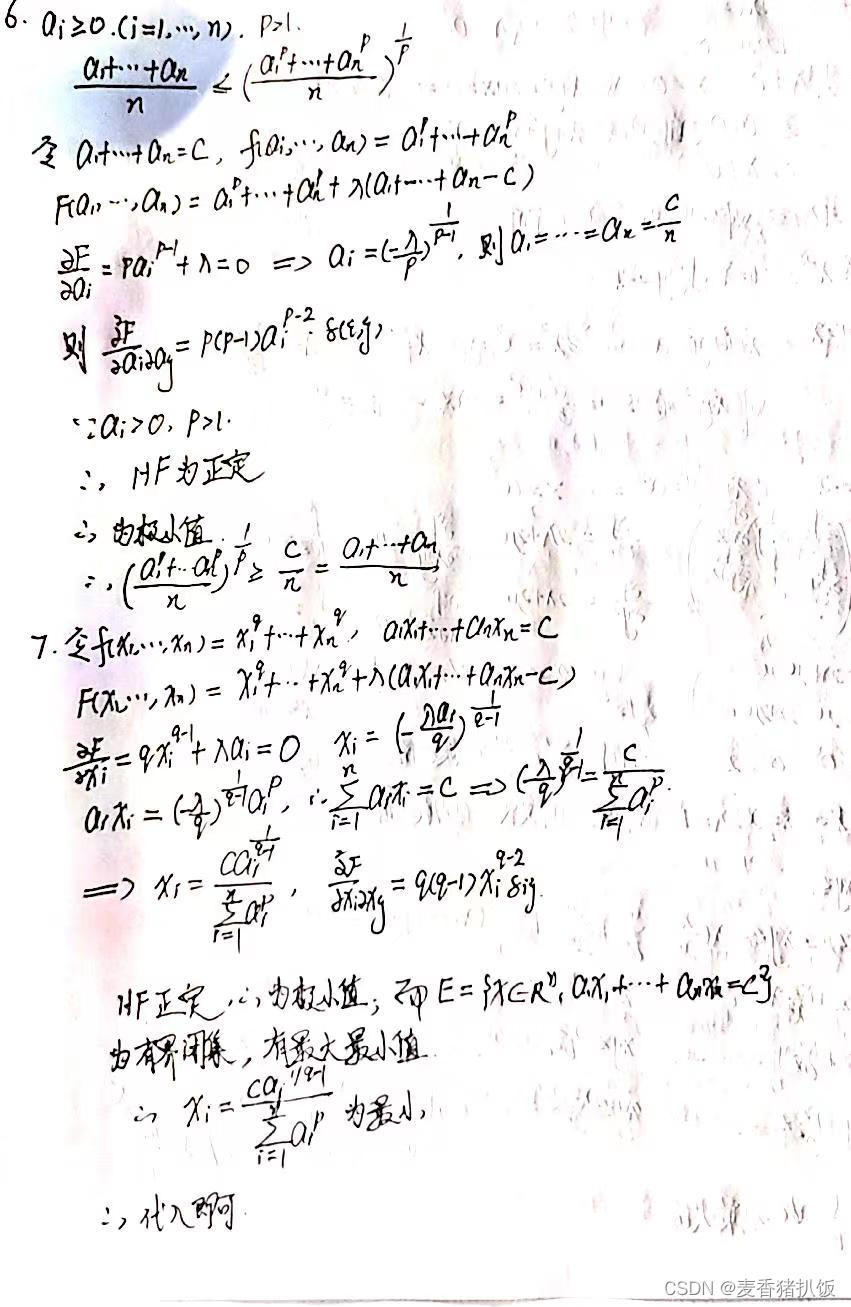 6. aᵢ≥0.(i=1,…,n). p>1.
(a₁+…+aₙ)/n ≤ ((a₁ᵖ+…+aₙᵖ)/n)^(1/p)
令 a₁+…+aₙ=C, f(a₁,…,aₙ)=a₁ᵖ+…+aₙᵖ
F(a₁,…,aₙ)=a₁ᵖ+…+aₙᵖ+λ(a₁+…+aₙ-C)
∂F/∂aᵢ=paᵢ^(p-1)+λ=0 ⇒ aᵢ=(-λ/p)^(1/(p-1)), 则a₁=…=aₙ=C/n
则 ∂²F/∂aᵢ∂aⱼ=p(p-1)aᵢ^(p-2)·δ(i,j).
∵aᵢ>0, p>1.
∴, HF为正定
∴ 为极小值
∴, ((a₁ᵖ+…aₙᵖ)/n)^(1/p) ≥ C/n = (a₁+…+aₙ)/n
7. 令f(x₁,…,xₙ)=x₁^q+…+xₙ^q, a₁x₁+…+aₙxₙ=C
F(x₁,…,xₙ)=x₁^q+…+xₙ^q+λ(a₁x₁+…+aₙxₙ-C)
∂F/∂xᵢ=qxᵢ^(q-1)+λaᵢ=0 xᵢ=(-λaᵢ/q)^(1/(q-1))
aᵢxᵢ=(-λ/q)^(1/(q-1))aᵢᵖ, ∴∑_{i=1}^{n}aᵢxᵢ=C ⇒ (-λ/q)^(1/(q-1))=C/∑_{i=1}^{n}aᵢᵖ.
⇒ xᵢ=Caᵢ^(1/(q-1))/∑_{i=1}^{n}aᵢᵖ, ∂²F/∂xᵢ∂xⱼ=q(q-1)xᵢ^(q-2)δᵢⱼ.
HF正定, ∴为极小值; 而E={x∈Rⁿ, a₁x₁+…+aₙxₙ=C}
为有界闭集, 有最大最小值
∴ xᵢ=Caᵢ^(1/q-1)/∑_{i=1}^{n}aᵢᵖ 为最小,
∴, 代入即可.
CSDN @麦香猪扒饭